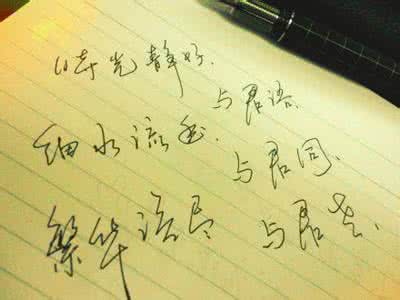 时光静好、
与君语、
细水流年、
与君同、
繁华落尽
与君老、